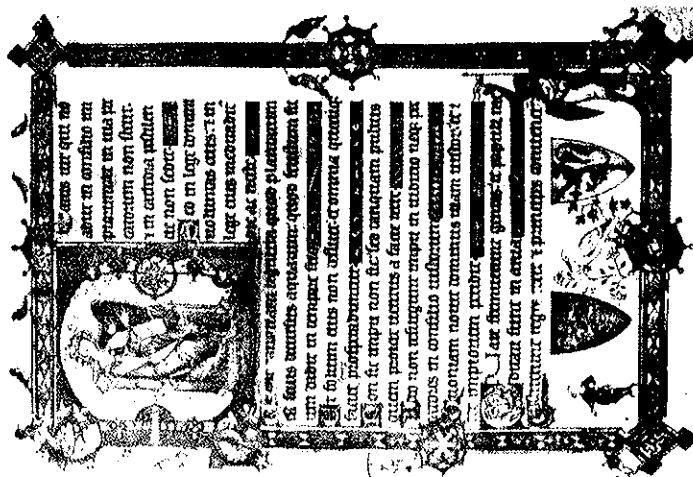 atus uir qui no
abiit in consilio im
piorum et in uia pe
catorum non stetit
i in cathedra pestilen
cie non sedit
Sed in lege domini
uoluntas eius i in
lege eius meditabitur
die ac nocte
Et erit tanquam lignum quod plantatum
est secus decursus aquarum quod fructum su
um dabit in tempore suo
Et folium eius non defluet et omnia quecunq
faciet prosperabuntur
Non sic impii non sic sed tanquam puluis
quem proicit uentus a facie terre
Ideo non resurgunt impii in iudicio neq pe
catores in consilio iustorum
Quoniam nouit dominus uiam iustorum et i
ter impiorum peribit
Quare fremuerunt gentes et populi me
ditati sunt inania
Astiterunt reges terre et principes conuenerunt